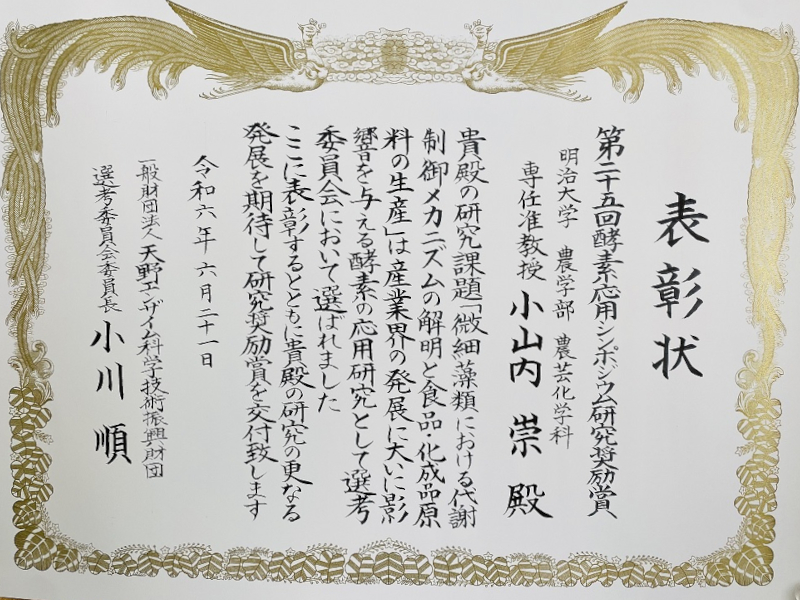 表彰状
第二十五回酵素応用シンポジウム研究奨励賞
明治大学 農学部 農芸化学科
専任准教授 小山内 崇 殿
貴殿の研究課題「微細藻類における代謝
制御メカニズムの解明と食品・化成品原
料の生産」は産業界の発展に大いに影
響を与える酵素の応用研究として選考
委員会において選ばれました
ここに表彰するとともに貴殿の研究の更なる
発展を期待して研究奨励賞を交付致します
令和六年六月二十一日
一般財団法人 天野エンザイム科学技術振興財団
選考委員会委員長 小川 順